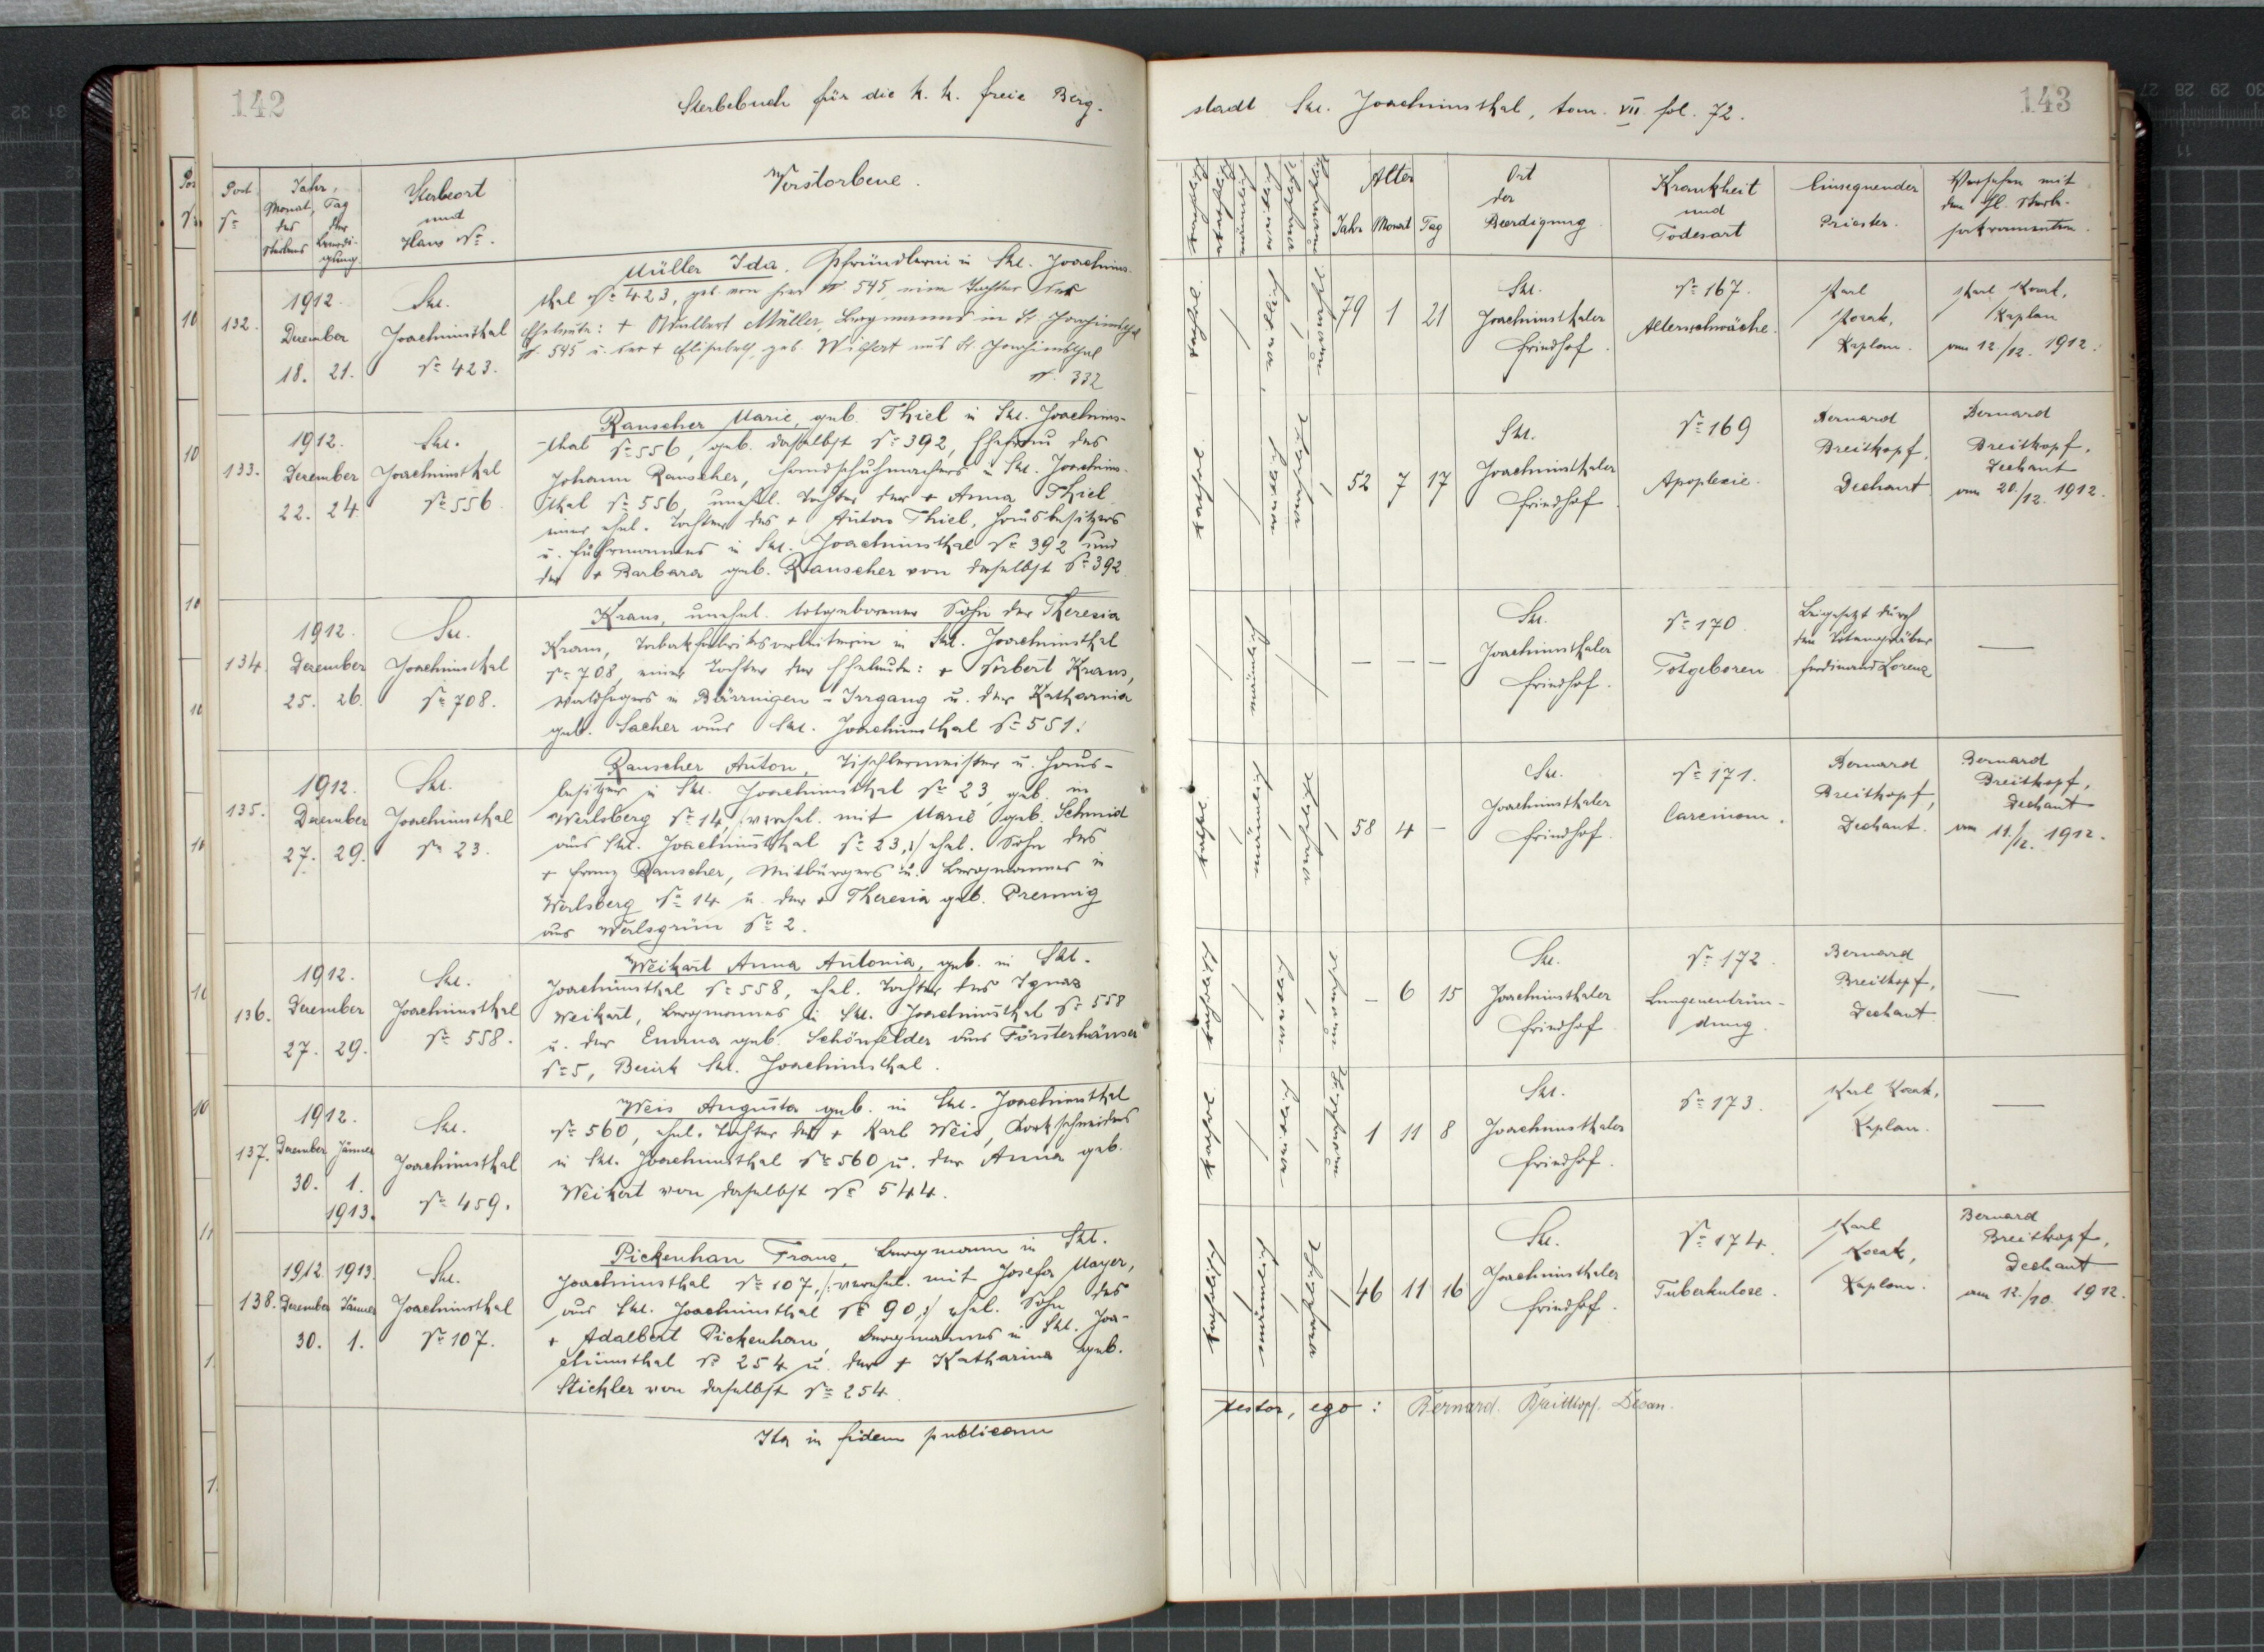 142
Sterbebuch für die k. k. freie Berg-
Post Nr.
Jahr, Monat, Tag
des Sterbens
der Beerdigung
Sterbeort
und
Haus Nr.
Verstorbene.
132.
1912.
Dezember
18. 21.
Skt.
Joachimsthal
Nr. 423.
Müller Ida, Pfründlerin in Skt. Joachims-
thal Nr. 423, geb. von hier N. 545, eine Tochter der
Eheleute: + Müller, Bergmanns in St. Joachimsthal
N. 545 u. der + Elisabeth, geb. Wilfert aus St. Joachimsthal
N. 332
133.
1912.
Dezember
22. 24.
Skt.
Joachimsthal
Nr. 556
Rauscher Marie, geb. Thiel in Skt. Joachims-
thal Nr. 556, geb. daselbst Nr. 392, Ehefrau des
Johann Rauscher, Handschuhmachers in Skt. Joachims-
thal Nr. 556, unehel. Tochter der + Anna Thiel
einer ehel. Tochter des + Anton Thiel, Hausbesitzers
u. Fuhrmannes in Skt. Joachimsthal Nr. 392 und
der + Barbara geb. Rauscher von daselbst Nr. 392.
134.
1912.
Dezember
25. 26.
Skt.
Joachimsthal
Nr. 708.
Kraus, unehel. totgeborener Sohn der Theresia
Kraus, Tabakfabriksarbeiterin in Skt. Joachimsthal
Nr. 708, einer Tochter der Eheleute: + Norbert Kraus,
Waldhegers in Bärringen - Irrgang u. der Katharina
geb. Sacher aus Skt. Joachimsthal Nr. 551.
135.
1912.
Dezember
27. 29.
Skt.
Joachimsthal
Nr. 23.
Rauscher Anton, Tischlermeister u. Haus-
besitzer in Skt. Joachimsthal Nr. 23, geb. in
Werlsberg Nr. 14, /:verehel. mit Marie geb. Schmid
aus Skt. Joachimsthal Nr. 23,:/ ehel. Sohn des
+ Franz Rauscher, Mitbürgers u. Bergmannes in
Werlsberg Nr. 14 u. der + Theresia geb. Prennig
aus Werlsgrün Nr. 2.
136.
1912.
Dezember
27. 29.
Skt.
Joachimsthal
Nr. 558.
Weikart Anna Antonia, geb. in Skt.
Joachimsthal Nr. 558, ehel. Tochter des Ignaz
Weikart, Bergmannes in Skt. Joachimsthal Nr. 558
u. der Emma geb. Schönfelder aus Försterhäuser
Nr. 5, Bezirk Skt. Joachimsthal.
137.
1912.
Dezember Jänner
30. 1.
1913.
Skt.
Joachimsthal
Nr. 459.
Weis Augusta geb. in Skt. Joachimsthal
Nr. 560, ehel. Tochter des + Karl Weis, Korkschneiders
in Skt. Joachimsthal Nr. 560 u. der Anna geb.
Weikert von daselbst Nr. 544.
138.
1912. 1913.
Dezember Jänner
30. 1.
Skt.
Joachimsthal
Nr. 107.
Pickenhan Franz, Bergmann in Skt.
Joachimsthal Nr. 107, /:verehel. mit Josefa Mayer,
aus Skt. Joachimsthal Nr. 90,:/ ehel. Sohn des
+ Adalbert Pickenhan, Bergmannes in Skt. Joa-
chimsthal Nr. 254 u. der + Katharina geb.
Stickler von daselbst Nr. 254.
Ita in fidem publicam
stadt Skt. Joachimsthal, tom. VII. fol. 72.
143
Alter
Jahr Monat Tag
Ort
der
Beerdigung
Krankheit
und
Todesart
Einsegnender
Priester.
Versehen mit
den hl. Sterb-
sakramenten.
79 1 21
Skt.
Joachimsthaler
Friedhof.
Nr. 167.
Altersschwäche.
Karl
Kozak,
Kaplan.
Karl Kozak,
Kaplan
am 12./12. 1912.
52 7 17
Skt.
Joachimsthaler
Friedhof
Nr. 169
Apoplexie.
Bernard
Breitkopf,
Dechant
Bernard
Breitkopf,
Dechant
am 20./12. 1912.
— — —
Skt.
Joachimsthaler
Friedhof.
Nr. 170.
Totgeboren
Beigesetzt durch
den Totengräber
Ferdinand Lorenz
—
katholisch
männlich
verehelicht
58 4 —
Skt.
Joachimsthaler
Friedhof.
Nr. 171.
Carcinom.
Bernard
Breitkopf,
Dechant.
Bernard
Breitkopf,
Dechant
am 11./12. 1912.
— 6 15
Skt.
Joachimsthaler
Friedhof
Nr. 172.
Lungenentzün-
dung.
Bernard
Breitkopf,
Dechant
—
1 11 8
Skt.
Joachimsthaler
Friedhof.
Nr. 173.
Karl Kozak,
Kaplan.
—
46 11 16
Skt.
Joachimsthaler
Friedhof.
Nr. 174.
Tuberkulose.
Karl
Kozak,
Kaplan.
Bernard
Breitkopf,
Dechant
am 12./10. 1912.
testor, ego: Bernard Breitkopf. Decan.